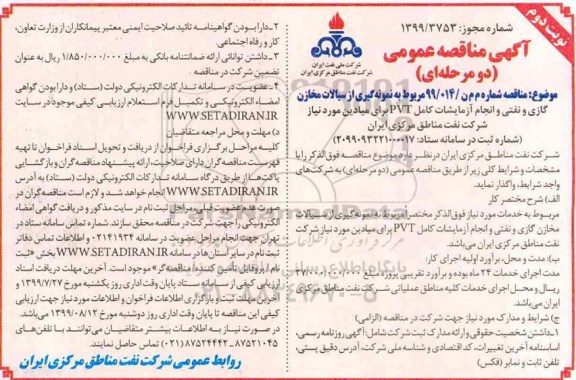 نوبت دوم
شماره مجوز: ۱۳۹۹/۳۷۵۳
آگهی مناقصه عمومی
(دو مرحله‌ای)
شرکت ملی نفت ایران
شرکت نفت مناطق مرکزی ایران
موضوع: مناقصه شماره م م ن /۹۹/۰۱۴ مربوط به نمونه گیری از سیالات مخازن
گازی و نفتی و انجام آزمایشات کامل PVT برای میادین مورد نیاز
شرکت نفت مناطق مرکزی ایران
(شماره ثبت در سامانه ستاد: ۲۰۹۹۰۹۳۲۲۱۰۰۰۰۱۷)
شرکت نفت مناطق مرکزی ایران درنظر دارد موضوع مناقصه فوق‌الذکر را با
مشخصات و شرایط کلی زیر از طریق مناقصه عمومی (دو مرحله‌ای) به شرکت‌های
واجد شرایط، واگذار نماید.
الف) شرح مختصر کار
مربوط به خدمات مورد نیاز فوق‌الذکر مختصراً مربوط به نمونه گیری از سیالات
مخازن گازی و نفتی و انجام آزمایشات کامل PVT برای میادین مورد نیاز شرکت
نفت مناطق مرکزی ایران می‌باشد.
ب) مدت و محل، برآورد اولیه اجرای کار:
مدت اجرای خدمات ۲۴ ماه بوده و برآورد تقریبی پروژه مبلغ
ریال و محل اجرای خدمات کلیه مناطق عملیاتی شرکت نفت مناطق مرکزی
ایران می‌باشد.
ج) شرایط و مدارک مورد نیاز جهت شرکت در مناقصه (الزامی)
۱-داشتن شخصیت حقوقی و ارائه مدارک ثبت شرکت شامل: آگهی روزنامه رسمی،
اساسنامه آخرین تغییرات، کد اقتصادی و شناسه ملی شرکت، آدرس دقیق پستی،
تلفن ثابت و نمابر (فکس)
۲-دارا بودن گواهینامه تائید صلاحیت ایمنی معتبر پیمانکاران از وزارت تعاون،
کار و رفاه اجتماعی.
۳-داشتن توانائی ارائه ضمانتنامه بانکی به مبلغ ۱/۸۵۰/۰۰۰/۰۰۰ ریال به عنوان
تضمین شرکت در مناقصه
۴-عضویت در سامانه تدارکات الکترونیکی دولت (ستاد) و دارا بودن گواهی
امضاء الکترونیکی و تکمیل فرم استعلام ارزیابی کیفی موجود در سایت
WWW.SETADIRAN.IR
د) مهلت و محل مراجعه متقاضیان
کلیه مراحل برگزاری فراخوان از دریافت و تحویل اسناد فراخوان تا تهیه
فهرست مناقصه گران دارای صلاحیت، ارائه پیشنهاد مناقصه گران و بازگشایی
پاکت‌ها از طریق درگاه سامانه تدارکات الکترونیکی دولت (ستاد) به آدرس
WWW.SETADIRAN.IR انجام خواهد شد و لازم است مناقصه گران در
صورت عدم عضویت قبلی، مراحل ثبت نام در سایت مذکور و دریافت گواهی امضاء
الکترونیکی را جهت شرکت در مناقصه محقق سازند. شماره تماس سامانه ستاد در
تهران جهت انجام مراحل عضویت در سامانه ۰۲۱۴۱۹۳۴ و اطلاعات تماس دفاتر
ثبت نام در سایر استان‌ها در سامانه WWW.SETADIRAN.IR بخش «ثبت
نام/ پروفایل تأمین کننده/ مناقصه گر» موجود است. آخرین مهلت دریافت اسناد
ارزیابی کیفی از سامانه ستاد پایان وقت اداری روز یکشنبه مورخ ۱۳۹۹/۷/۲۷ و
آخرین مهلت ثبت و بارگذاری اطلاعات فراخوان و اطلاعات مورد نیاز جهت ارزیابی
کیفی این مناقصه تا پایان وقت اداری روز دوشنبه مورخ ۱۳۹۹/۰۸/۱۲ می‌باشد.
در صورت نیاز به اطلاعات بیشتر متقاضیان می‌توانند با تلفن‌های
۸۷۵۲۱۰۴۵-۸۷۵۲۴۴۴۲ (۰۲۱) تماس حاصل نمایند.
روابط عمومی شرکت نفت مناطق مرکزی ایران